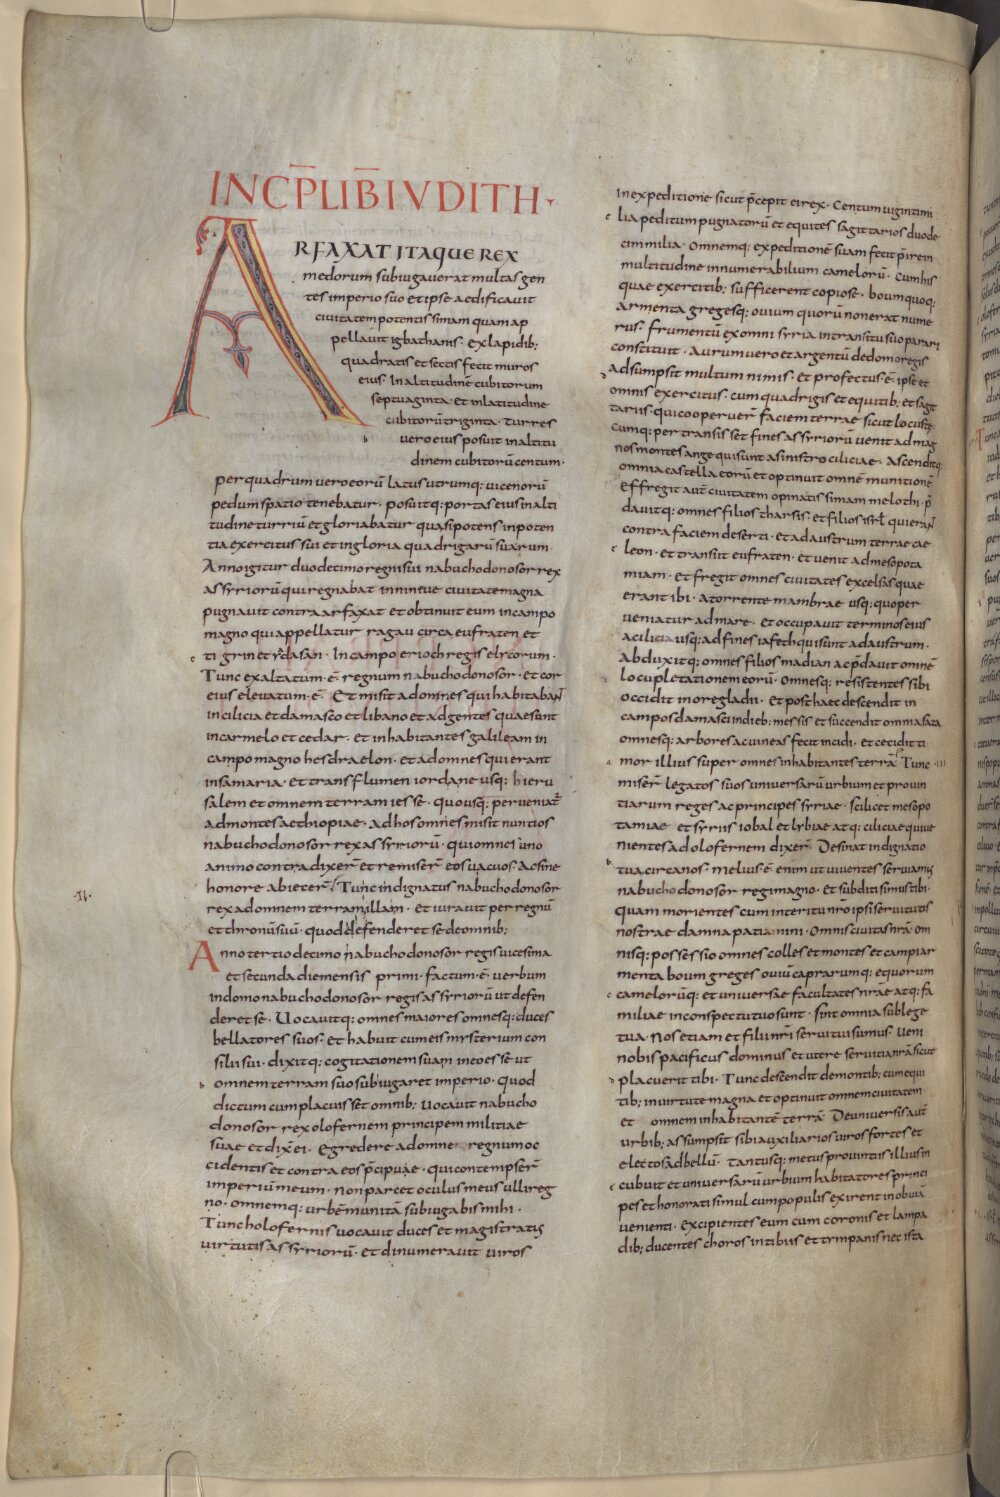 INCP̄ LIB̄ IVDITH·
ARFAXAT ITAQUE REX
medorum subiugauerat multas gen
tes imperio suo et ipse aedificauit
ciuitatem potentissimam quam ap
pellauit igbathanis· Ex lapidib;
quadratis et sectis fecit muros
eius· In altitudinē cubitorum
septuaginta· et in latitudine
cubitorū triginta· turres
uero eius posuit in altitu
dinem cubitorū centum·
per quadrum uero eorū latus utrumq; uicenorū
pedum spatio tenebatur· posuitq; portas eius in alti
tudine turriū et gloriabatur quasi potens in poten
tia exercitus sui et in gloria quadrigarū suarum·
Anno igitur duodecimo regni sui nabuchodonosor rex
assyriorū qui regnabat in nineue ciuitate magna
pugnauit contra arfaxat et obtinuit eum in campo
magno qui appellatur ragau circa eufraten et
tigrin et ydasan· In campo erioch regis elycorum·
Tunc exaltatum·ē· regnum nabuchodonosor· et cor
eius eleuatum·ē· Et misit ad omnes qui habitabant
in cilicia et damasco et libano et ad gentes quae sunt
in carmelo et cedar· et inhabitantes galileam in
campo magno hesdraelon· et ad omnes qui erant
in samaria· et trans flumen iordane usq; hieru
salem et omnem terram iesse· quousq; perueniat̄
ad montes aethiopiae· ad hos omnes misit nuntios
nabuchodonosor rex assyriorū· qui omnes uno
animo contradixer̄ et remiser̄ eos uacuos· Ac sine
honore abiecer̄· Tunc indignatus nabuchodonosor
·II·
rex ad omnem terram illam· et iurauit per regnū
et thronū suū· quod defenderet se de omnib;
Anno tertio decimo nabuchodonosor regis uicesima
et secunda die mensis primi· factum·ē· uerbum
in domo nabuchodonosor regis assyriorū ut defen
deret se· Uocauitq; omnes maiores omnesq; duces
bellatores suos· et habuit cum eis mysterium con
silii sui· dixitq; cogitationem suam in eo esse ut
omnem terram suo subiugaret imperio· quod
dictum cum placuisset omnib; uocauit nabucho
donosor rex olofernem principem militiae
suae et dix̄ ei· Egredere ad omne regnum oc
cidentis et contra eos p̄cipuae· qui contempser̄
imperiū meum· non parcet oculus meus ulli reg
no· omnemq; urbē munitā subiugabis mihi·
Tunc holofernis uocauit duces et magistratus
uirtutis assyriorū· et dinumerauit uiros
in expeditione sicut p̄cepit ei rex· Centum uiginti mi
lia peditum pugnatorū et equites sagittarios duode
cim milia· Omnemq; expeditionē suam fecit p̄ire in
multitudine innumerabilium camelorū· cum his
quae exercitib; sufficerent copiose· boumquoq;
armenta gregesq; ouium quorū non erat nume
rus· frumentū ex omni syria in transitu suo parari
constituit· Aurum uero et argentū de domo regis
adsumpsit multum nimis· et profectus·ē· ipse et
omnis exercitus· cum quadrigis et equitib; et sagit
tariis· qui cooperuer̄ faciem terrae sicut locustę·
Cumq; pertransisset fines assyriorū uenit ad mag
nos montes ange qui sunt a sinistro ciliciae· Ascenditq;
omnia castella eorū et optinuit omnē munitionē
Effregit aut̄ ciuitatem opinatissimam melothi· p̄
dauitq; omnes filios tharsis· et filios isrl̄ qui erant
contra faciem deserti· et ad austrum terrae cae
leon· et transiit eufraten· et uenit ad mesopota
miam· Et fregit omnes ciuitates excelsas quae
erant ibi· a torrente mambrae usq; quo per
ueniatur ad mare· et occupauit terminos eius
a cilicia usq; ad fines iafeth qui sunt ad austrum·
Abduxitq; omnes filios madian ac p̄dauit omnē
locupletationem eorū· Omnesq; resistentes sibi
occidit in ore gladii· Et post haec descendit in
campos damasci in dieb; messis et succendit omnia sata
omnesq; arbores ac uineas fecit incidi· et cecidit ti
mor illius super omnes inhabitantes terrā· Tunc
·III·
miser̄ legatos suos uniuersarū urbium et prouin
tiarum reges ac principes syriae· scilicet mesopo
tamiae et syriis iobal et lybiae atq; ciliciae qui ue
nientes ad olofernem dixer̄· Desinat indignatio
tua circa nos· melius·ē· enim ut uiuentes seruiamus
nabuchodonosor regi magno· et subditi simus tibi·
quam morientes cum interitu nr̄o ipsi seruitutis
nostrae damna patiamini· Omnis ciuitas nr̄a om
nisq; possessio omnes colles et montes et campi ar
menta boum greges ouiū caprarumq; equorum
camelorūq; et uniuersae facultates nr̄ae atq; fa
miliae in conspectu tuo sunt· sint omnia sub lege
tua· Nos etiam et filii nr̄i serui tui sumus· Ueni
nobis pacificus dominus et utere seruitia nr̄a sicut
placuerit tibi· Tunc descendit de montib; cum equi
tib; in uirtute magna et optinuit omnem ciuitatem
et omnem inhabitantē terrā· De uniuersis aut̄
urbib; assumpsit sibi auxiliarios uiros fortes et
electos ad bellū· tantusq; metus prouintiis illius in
cubuit et uniuersarū urbium habitatores princi
pes et honorati simul cum populis exirent in obuiā
uenienti· excipientes eum cum coronis et lampa
dib; ducentes choros in tibiis et tympanis nec ista